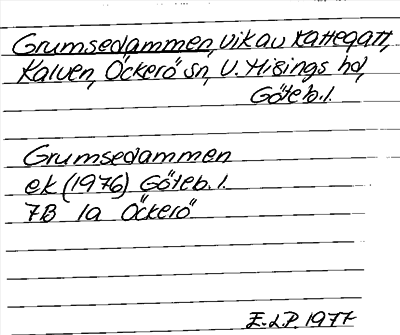 Grumsedammen, vik av Kattegatt,
Kalven, Öckerö sn, V. Hisings hd,
Göteb. l.
Grumsedammen
ek (1976) Göteb. l.
7B 1a Öckerö
E.L.P. 1977